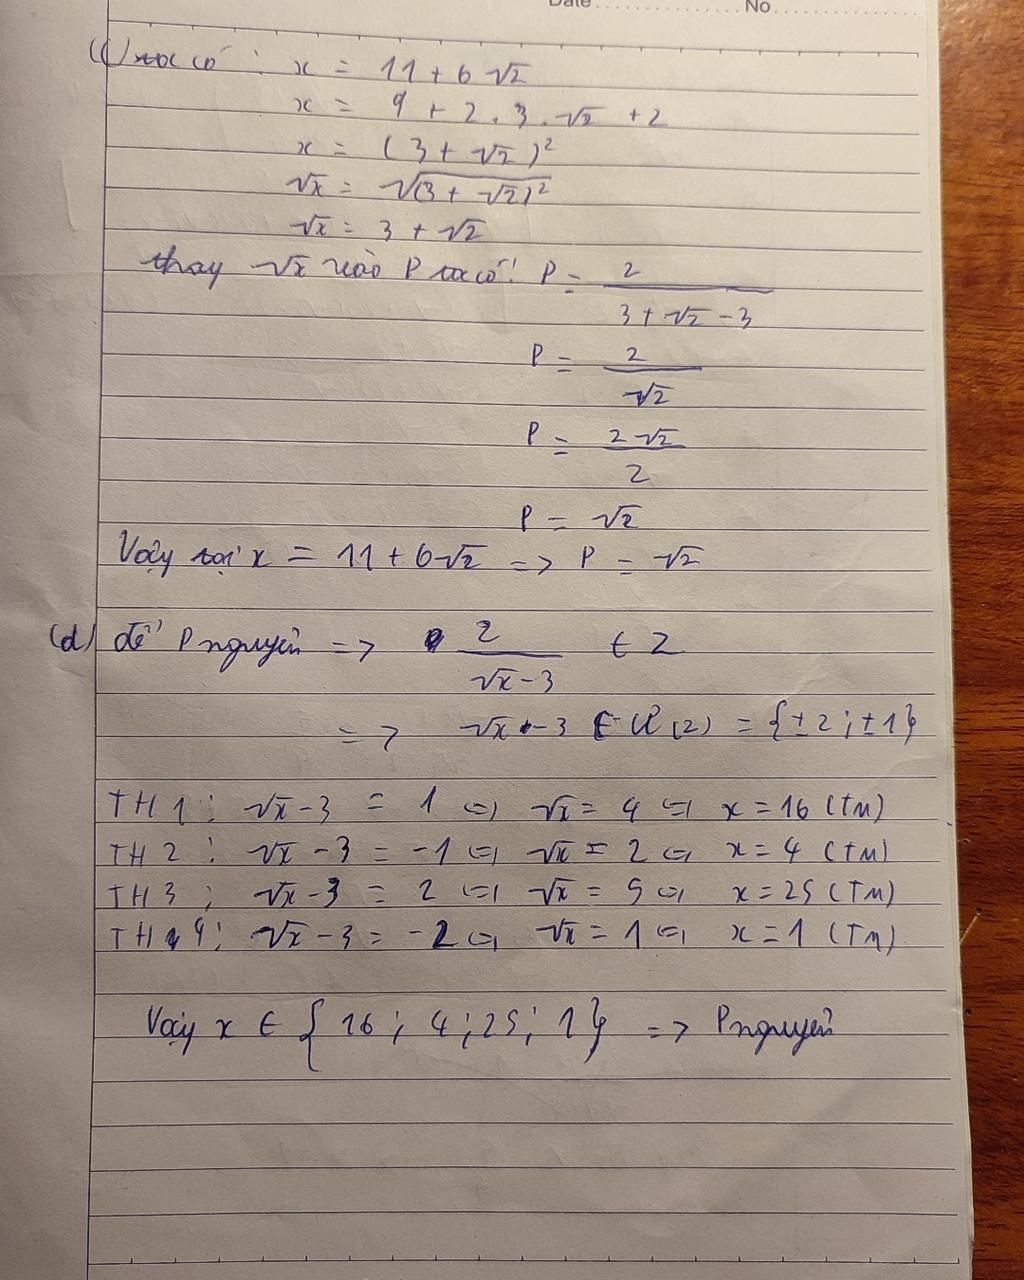 Date ............ No ............
(c) ta có : x = 11 + 6√2
x = 9 + 2 . 3 . √2 + 2
x = (3 + √2)²
√x = √(3 + √2)²
√x = 3 + √2
thay √x vào P ta có : P = 2 / (3 + √2 - 3)
P = 2 / √2
P = 2√2 / 2
P = √2
Vậy tại x = 11 + 6√2 => P = √2
(d) để P nguyên => 2 / (√x - 3) ∈ Z
=> √x - 3 ∈ Ư(2) = {±2 ; ±1}
TH1 : √x - 3 = 1 <=> √x = 4 <=> x = 16 (TM)
TH2 : √x - 3 = -1 <=> √x = 2 <=> x = 4 (TM)
TH3 ; √x - 3 = 2 <=> √x = 5 <=> x = 25 (TM)
TH4 : √x - 3 = -2 <=> √x = 1 <=> x = 1 (TM)
Vậy x ∈ {16 ; 4 ; 25 ; 1} => P nguyên